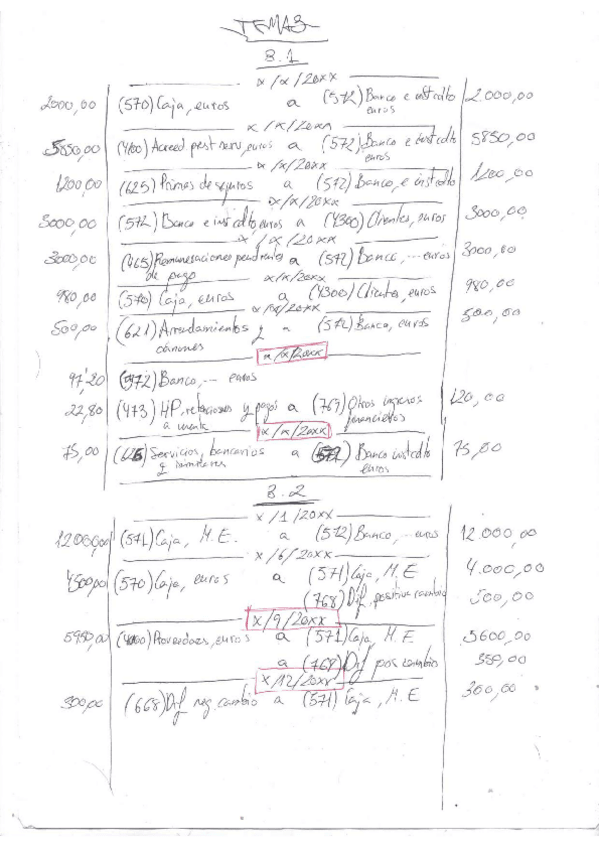 TEMA 8
8.1
x/x/20xx
2000,00 (570) Caja, euros a (572) Banco e inst cdto euros 2.000,00
x/x/20xx
5850,00 (4100) Acreed prest serv, euros a (572) Banco e inst cdto euros 5850,00
x/x/20xx
1200,00 (625) Primas de seguros a (572) Banco, e inst cdto 1200,00
x/x/20xx
3000,00 (572) Banco e inst cdto, euros a (4300) Clientes, euros 3000,00
x/x/20xx
3000,00 (465) Remuneraciones pendientes de pago a (572) Banco, ... euros 3000,00
x/x/20xx
980,00 (570) Caja, euros a (4300) Clientes, euros 980,00
x/x/20xx
500,00 (621) Arrendamientos y cánones a (572) Banco, euros 500,00
x/x/20xx
97,20 (572) Banco, ... euros
22,80 (473) HP, retenciones y pagos a cuenta a (769) Otros ingresos financieros 120,00
x/x/20xx
75,00 (626) Servicios, bancarios y similares a (572) Banco inst cdto euros 75,00
8.2
x/1/20xx
12000,00 (571) Caja, M.E. a (572) Banco, ... euros 12.000,00
x/6/20xx
4500,00 (570) Caja, euros a (571) Caja, M.E 4.000,00
(768) Dif. positiva cambio 500,00
x/9/20xx
5950,00 (4000) Proveedores, euros a (571) Caja, M.E. 5600,00
a (768) Dif pos cambio 350,00
x/12/20xx
300,00 (668) Dif neg. cambio a (571) Caja, M.E 300,00